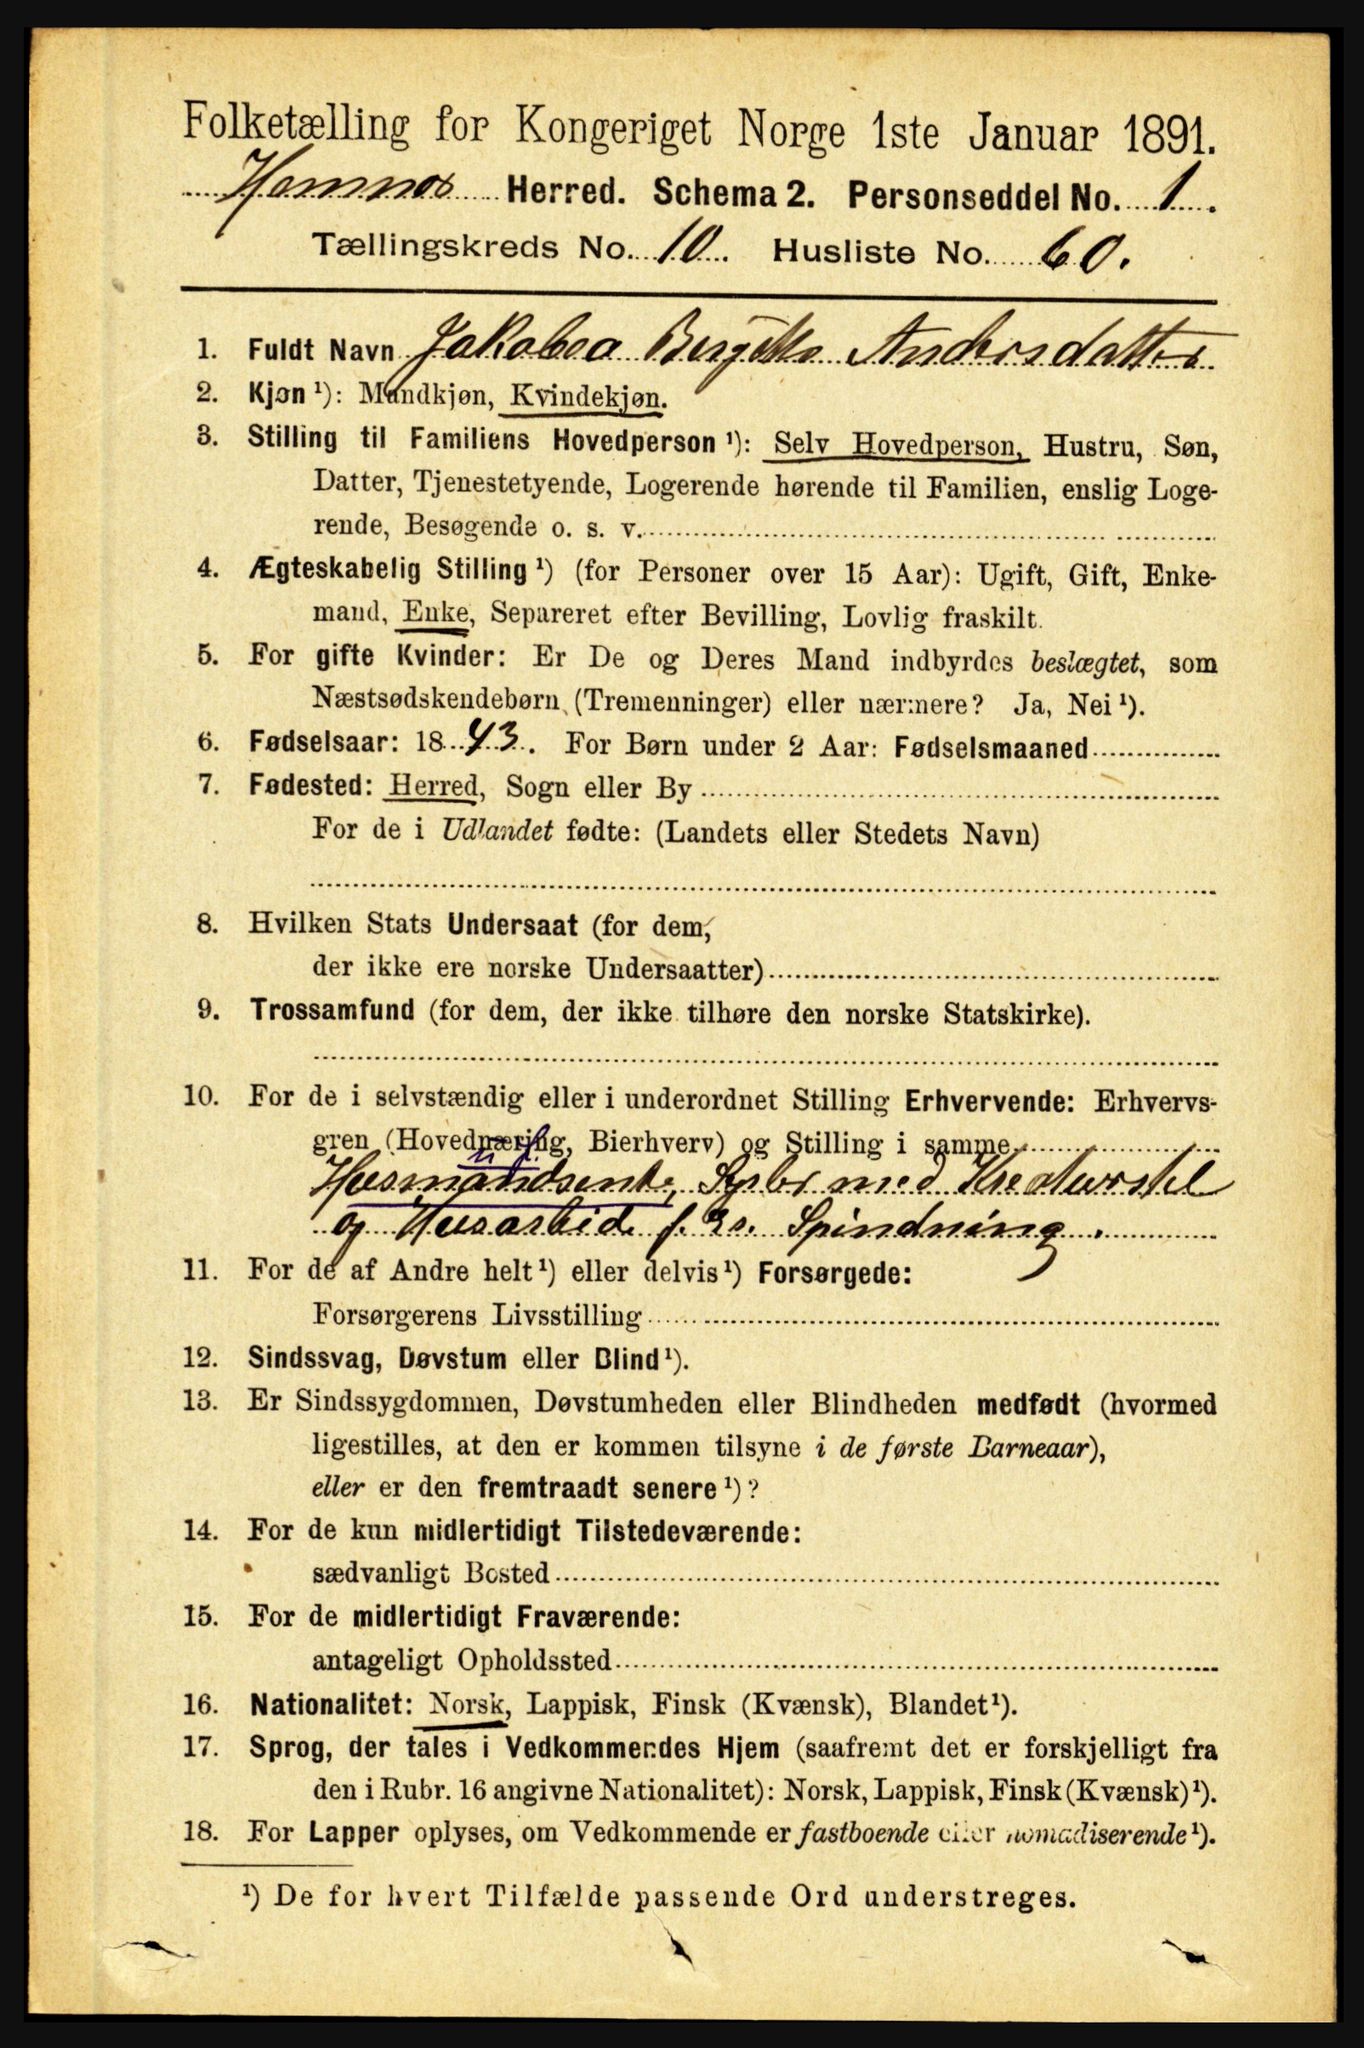 Folketælling for Kongeriget Norge 1ste Januar 1891.
Hemnes Herred. Schema 2. Personseddel No. 1.
Tællingskreds No. 10. Husliste No. 60.
1. Fuldt Navn Jakobea Bergitte Andersdatter
2. Kjøn ¹): Mandkjøn, Kvindekjøn.
3. Stilling til Familiens Hovedperson ¹): Selv Hovedperson, Hustru, Søn,
Datter, Tjenestetyende, Logerende hørende til Familien, enslig Loge-
rende, Besøgende o. s. v.
4. Ægteskabelig Stilling ¹) (for Personer over 15 Aar): Ugift, Gift, Enke-
mand, Enke, Separeret efter Bevilling, Lovlig fraskilt.
5. For gifte Kvinder: Er De og Deres Mand indbyrdes beslægtet, som
Næstsødskendebørn (Tremenninger) eller nærmere? Ja, Nei ¹).
6. Fødselsaar: 1843. For Børn under 2 Aar: Fødselsmaaned
7. Fødested: Herred, Sogn eller By
For de i Udlandet fødte: (Landets eller Stedets Navn)
8. Hvilken Stats Undersaat (for dem,
der ikke ere norske Undersaatter)
9. Trossamfund (for dem, der ikke tilhøre den norske Statskirke).
10. For de i selvstændig eller i underordnet Stilling Erhvervende: Erhvervs-
gren (Hovednæring, Bierhverv) og Stilling i samme
Husmandsenke, Sysler med Kreaturstel
og Husarbeide f. Ex. Spindning.
11. For de af Andre helt ¹) eller delvis ¹) Forsørgede:
Forsørgerens Livsstilling
12. Sindssvag, Døvstum eller Blind ¹).
13. Er Sindssygdommen, Døvstumheden eller Blindheden medfødt (hvormed
ligestilles, at den er kommen tilsyne i de første Barneaar),
eller er den fremtraadt senere ¹)?
14. For de kun midlertidigt Tilstedeværende:
sædvanligt Bosted
15. For de midlertidigt Fraværende:
antageligt Opholdssted
16. Nationalitet: Norsk, Lappisk, Finsk (Kvænsk), Blandet ¹).
17. Sprog, der tales i Vedkommendes Hjem (saafremt det er forskjelligt fra
den i Rubr. 16 angivne Nationalitet): Norsk, Lappisk, Finsk (Kvænsk) ¹).
18. For Lapper oplyses, om Vedkommende er fastboende eller nomadiserende ¹).
¹) De for hvert Tilfælde passende Ord understreges.